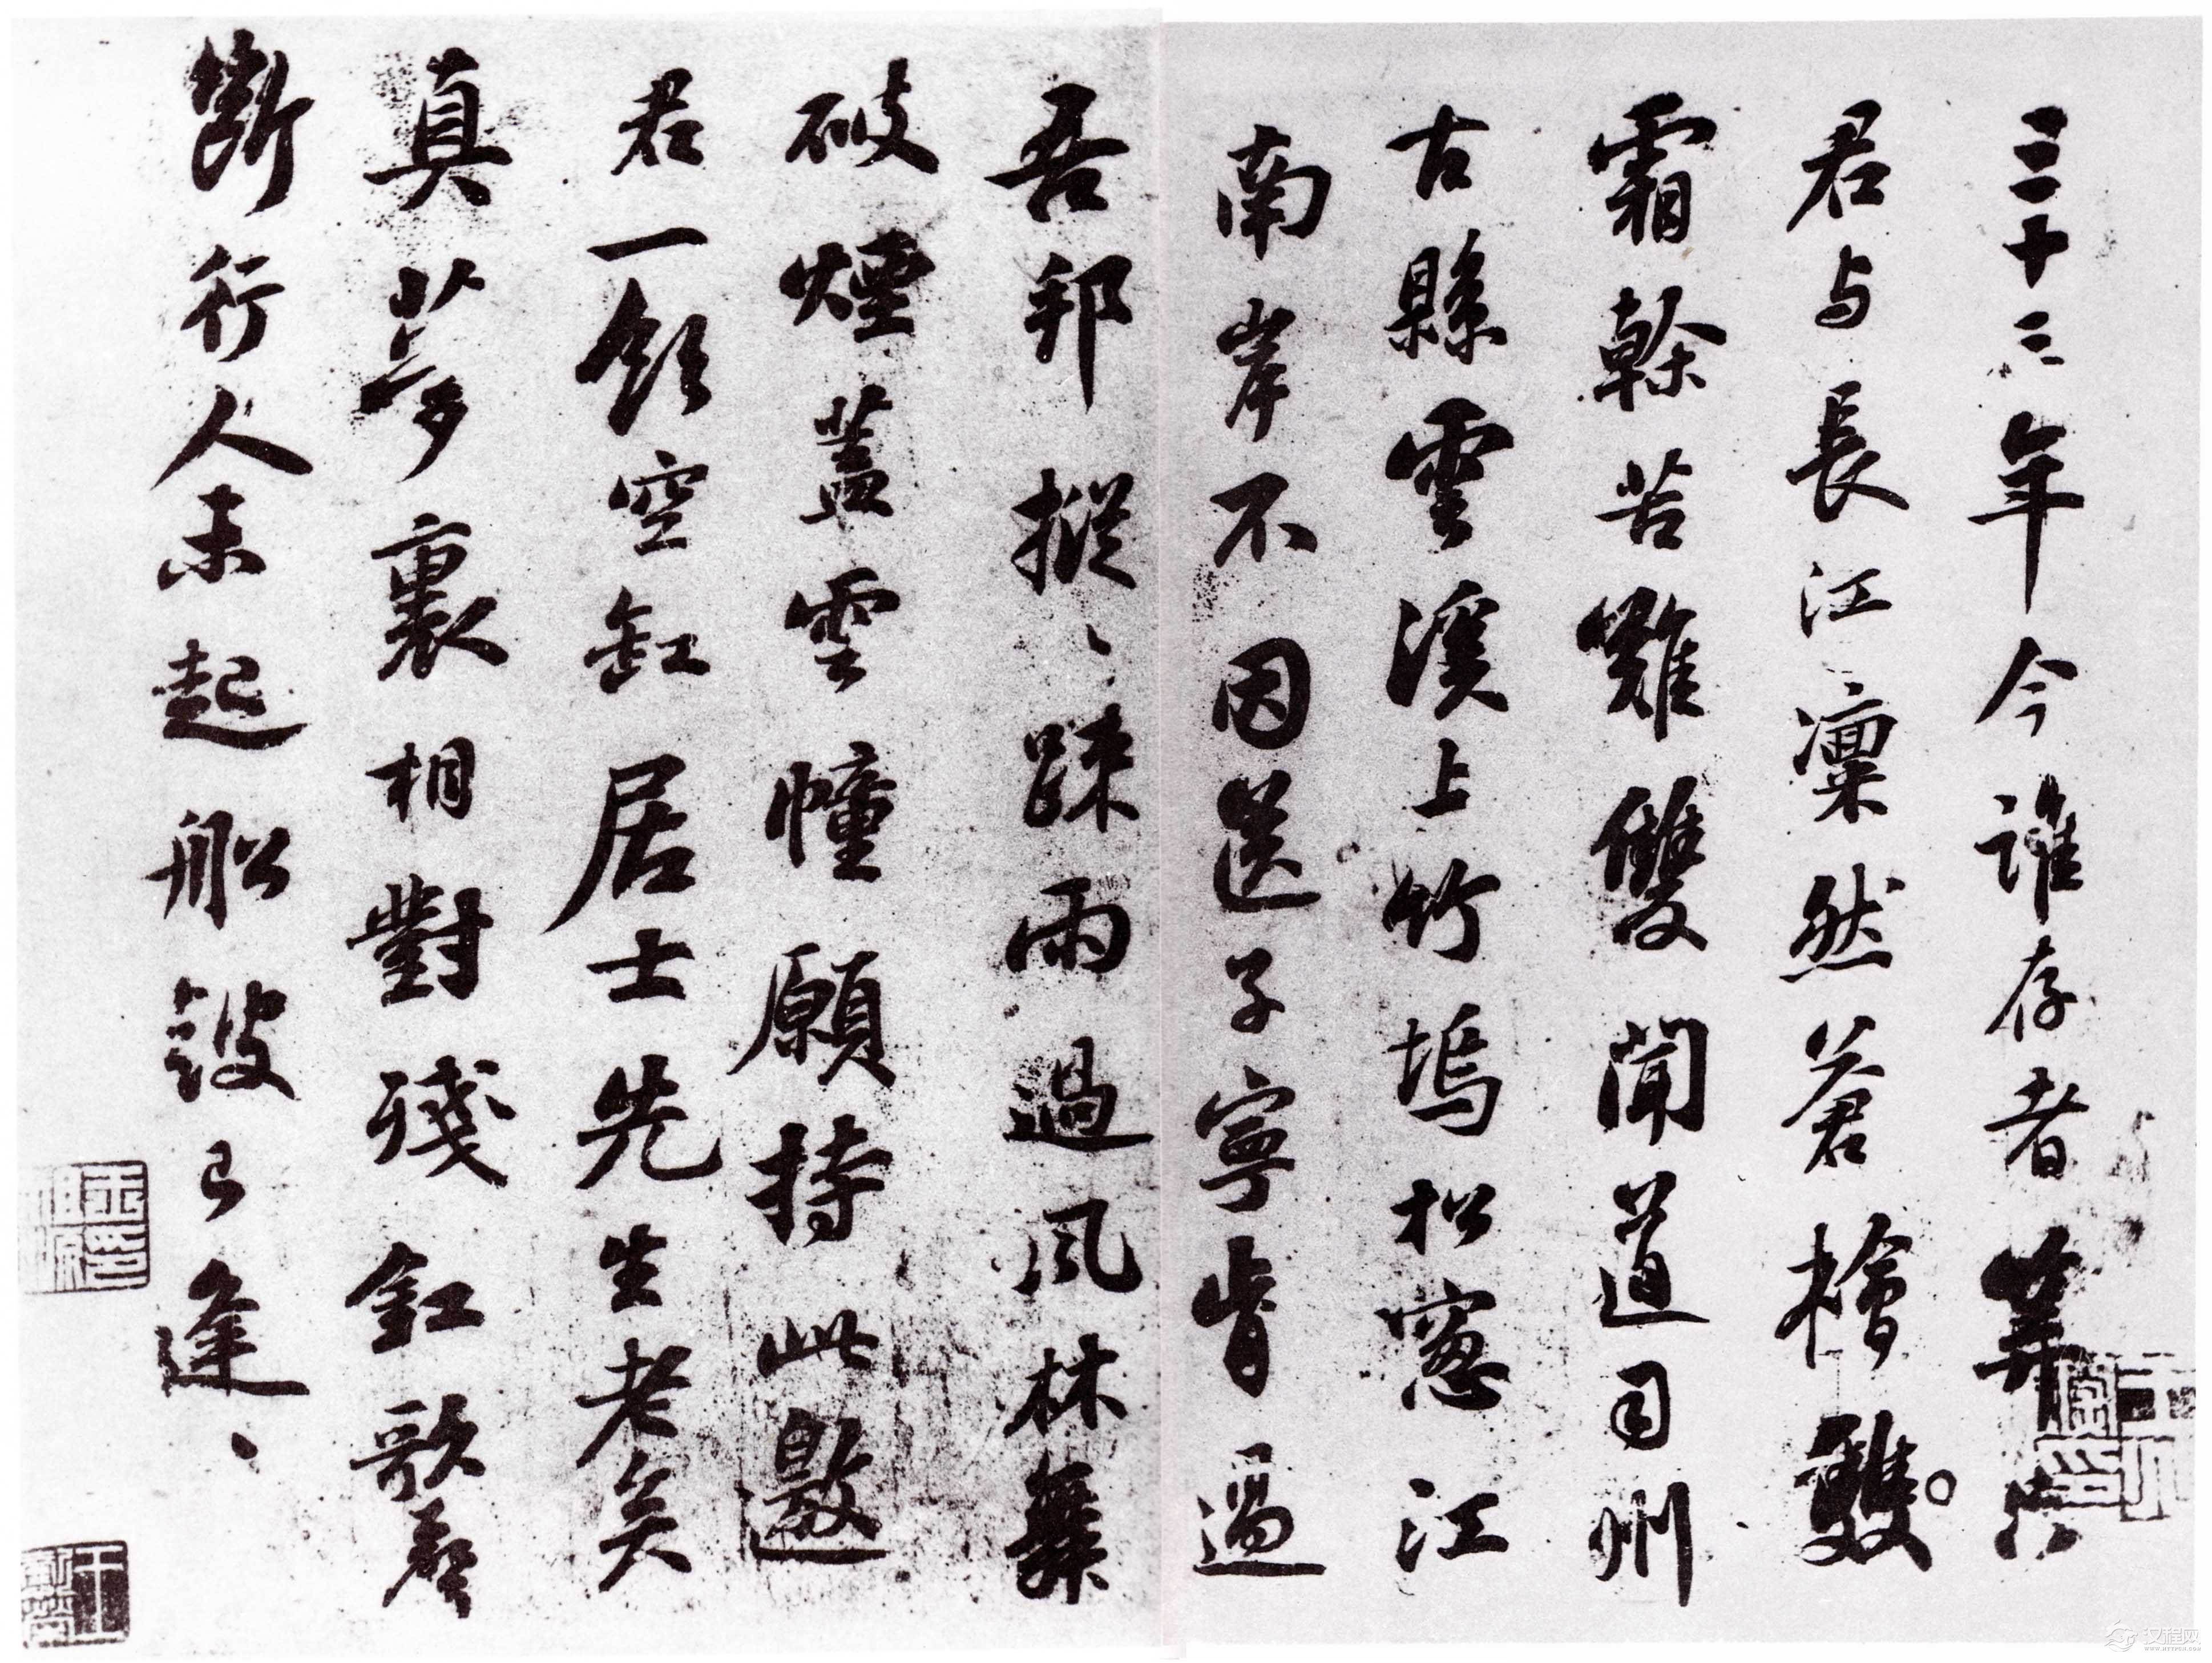 三十三年今誰存者算只
君与長江凛然蒼檜雙
霜幹苦難雙聞道司州
古縣雲溪上竹塢松窓江
南岸不因送子寧肯過
吾邦摐〻踈雨過風林舞
破煙蓋雲幢願持此邀
君一飲空缸居士先生老矣
真夢裏相對殘釭歌聲
斷行人未起船皷已逢〻
汉程网
WWW.HTTPCN.COM